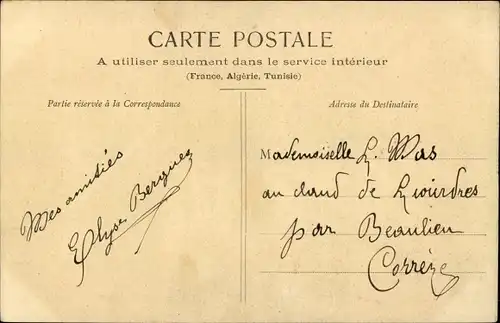 CARTE POSTALE
A utiliser seulement dans le service intérieur
(France, Algérie, Tunisie)
Partie réservée à la Correspondance
Mes amitiés
Elyse
Adresse du Destinataire
Mademoiselle L. Mas
au de
par Beaulieu
Corrèze